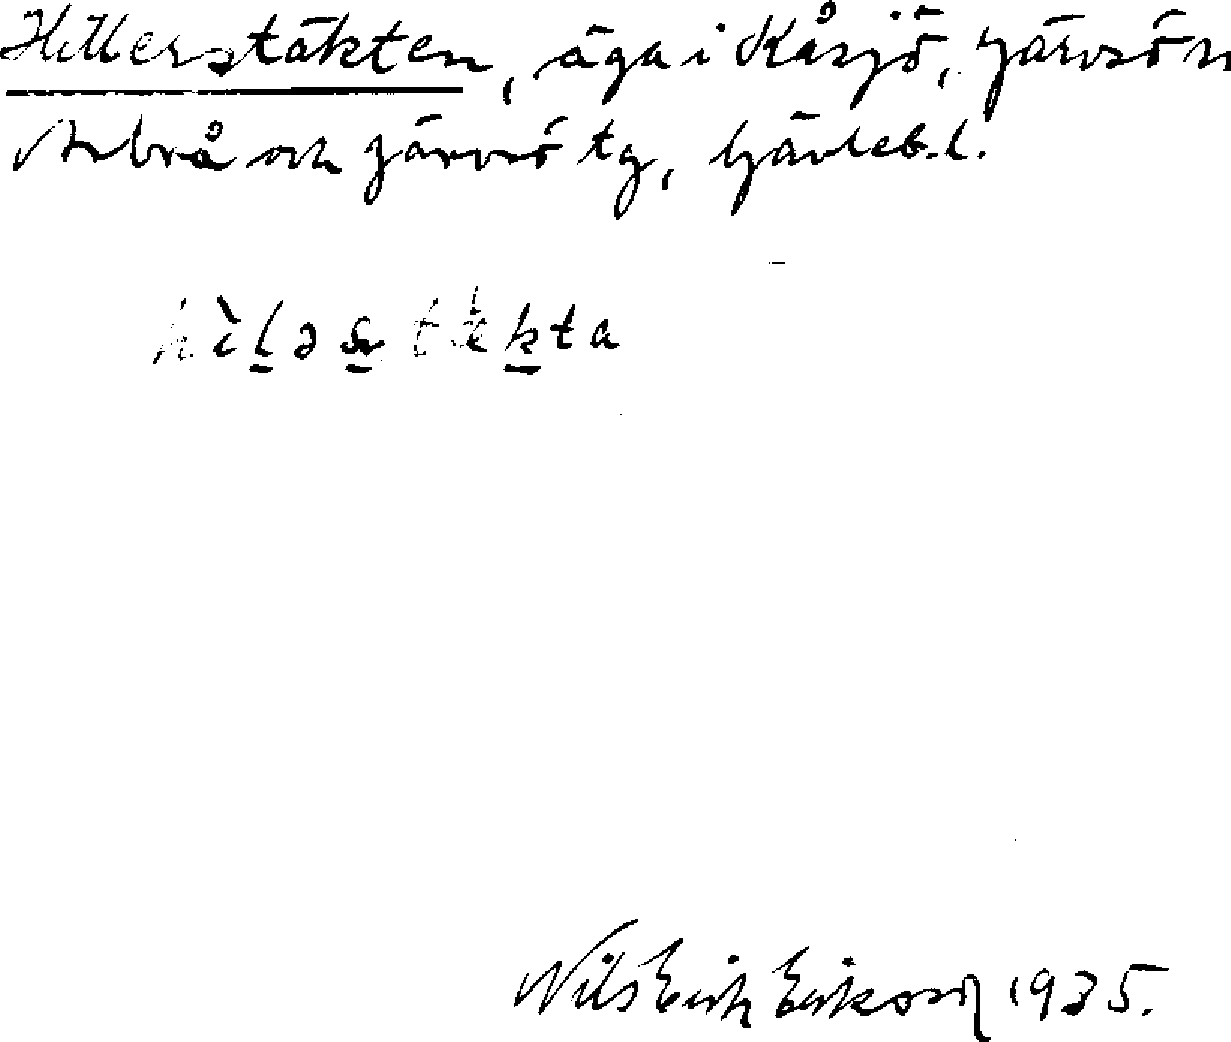 Hillerstäkten, äga i Kåsjö, Järvsö sn
Arbrå och Järvsö tg, Gävleb. l.
hìləstękta
Nils Erik Erikson 1935.